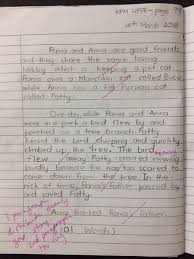 14th March 2018
Rania and Anna are good friends
and they share the same loving
hobby which is keeping a pet cat.
Rania owns a Munchkin cat called Duke
while Anna has a fat Persian cat
called Fatty.
One day, while Rania and Anna
were in a park a bird flew by and
perched on a tree branch. Fatty
heard the bird chirping and quickly
climbed up the tree. The bird
flew away. Fatty started meowing
loudly because he was too scared to
come down from the tree. In the
nick of time, Rania's Father passed by
and saved Fatty.
Anna thanked Rania's Father.